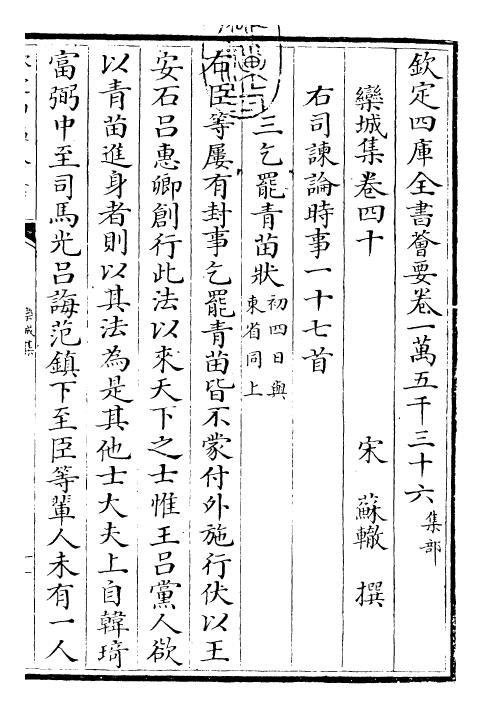 欽定四庫全書薈要卷一萬五千三十六 集部
欒城集卷四十 宋 蘇轍 撰
右司諫論時事一十七首
三乞罷青苗狀 初四日與東省同上
右臣等屢有封事乞罷青苗皆不蒙付外施行伏以王
安石呂惠卿創行此法以來天下之士惟王呂黨人欲
以青苗進身者則以其法為是其他士大夫上自韓琦
富弼中至司馬光呂誨范鎮下至臣等輩人未有一人
欒城集